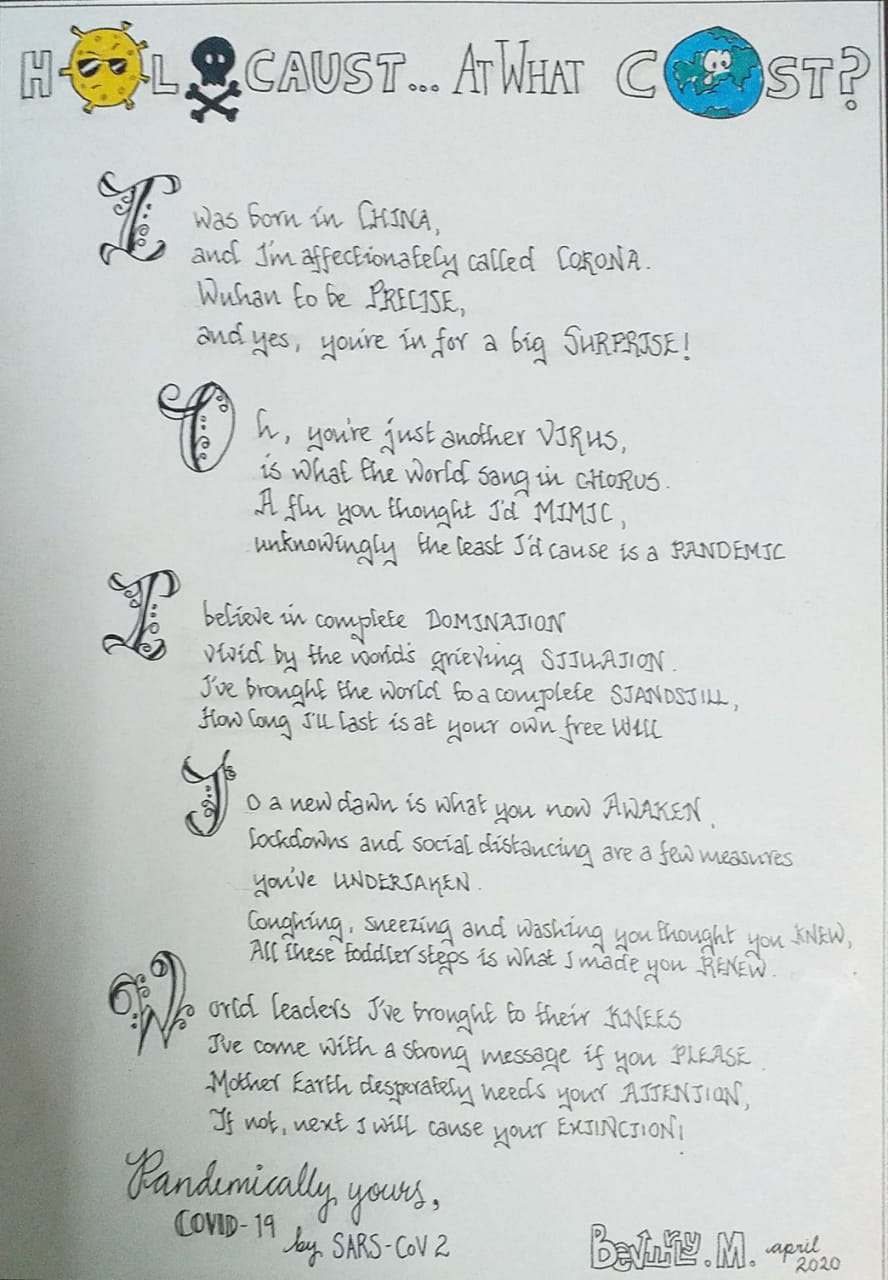 HOLOCAUST... AT WHAT COST?
I was born in CHINA,
and I'm affectionately called CORONA.
Wuhan to be PRECISE,
and yes, you're in for a big SURPRISE!
Oh, you're just another VIRUS,
is what the world sang in CHORUS.
A flu you thought I'd MIMIC,
unknowingly the least I'd cause is a PANDEMIC
I believe in complete DOMINATION
vivid by the world's grieving SITUATION.
I've brought the world to a complete STANDSTILL,
How long I'll last is at your own free WILL
To a new dawn is what you now AWAKEN,
lockdowns and social distancing are a few measures
you've UNDERTAKEN.
Coughing, sneezing and washing you thought you KNEW,
All these toddler steps is what I made you RENEW.
World leaders I've brought to their KNEES
I've come with a strong message if you PLEASE.
Mother Earth desperately needs your ATTENTION,
If not, next I will cause your EXTINCTION!
Pandemically yours,
COVID-19
by SARS-CoV 2
BEVERLY. M. april
2020